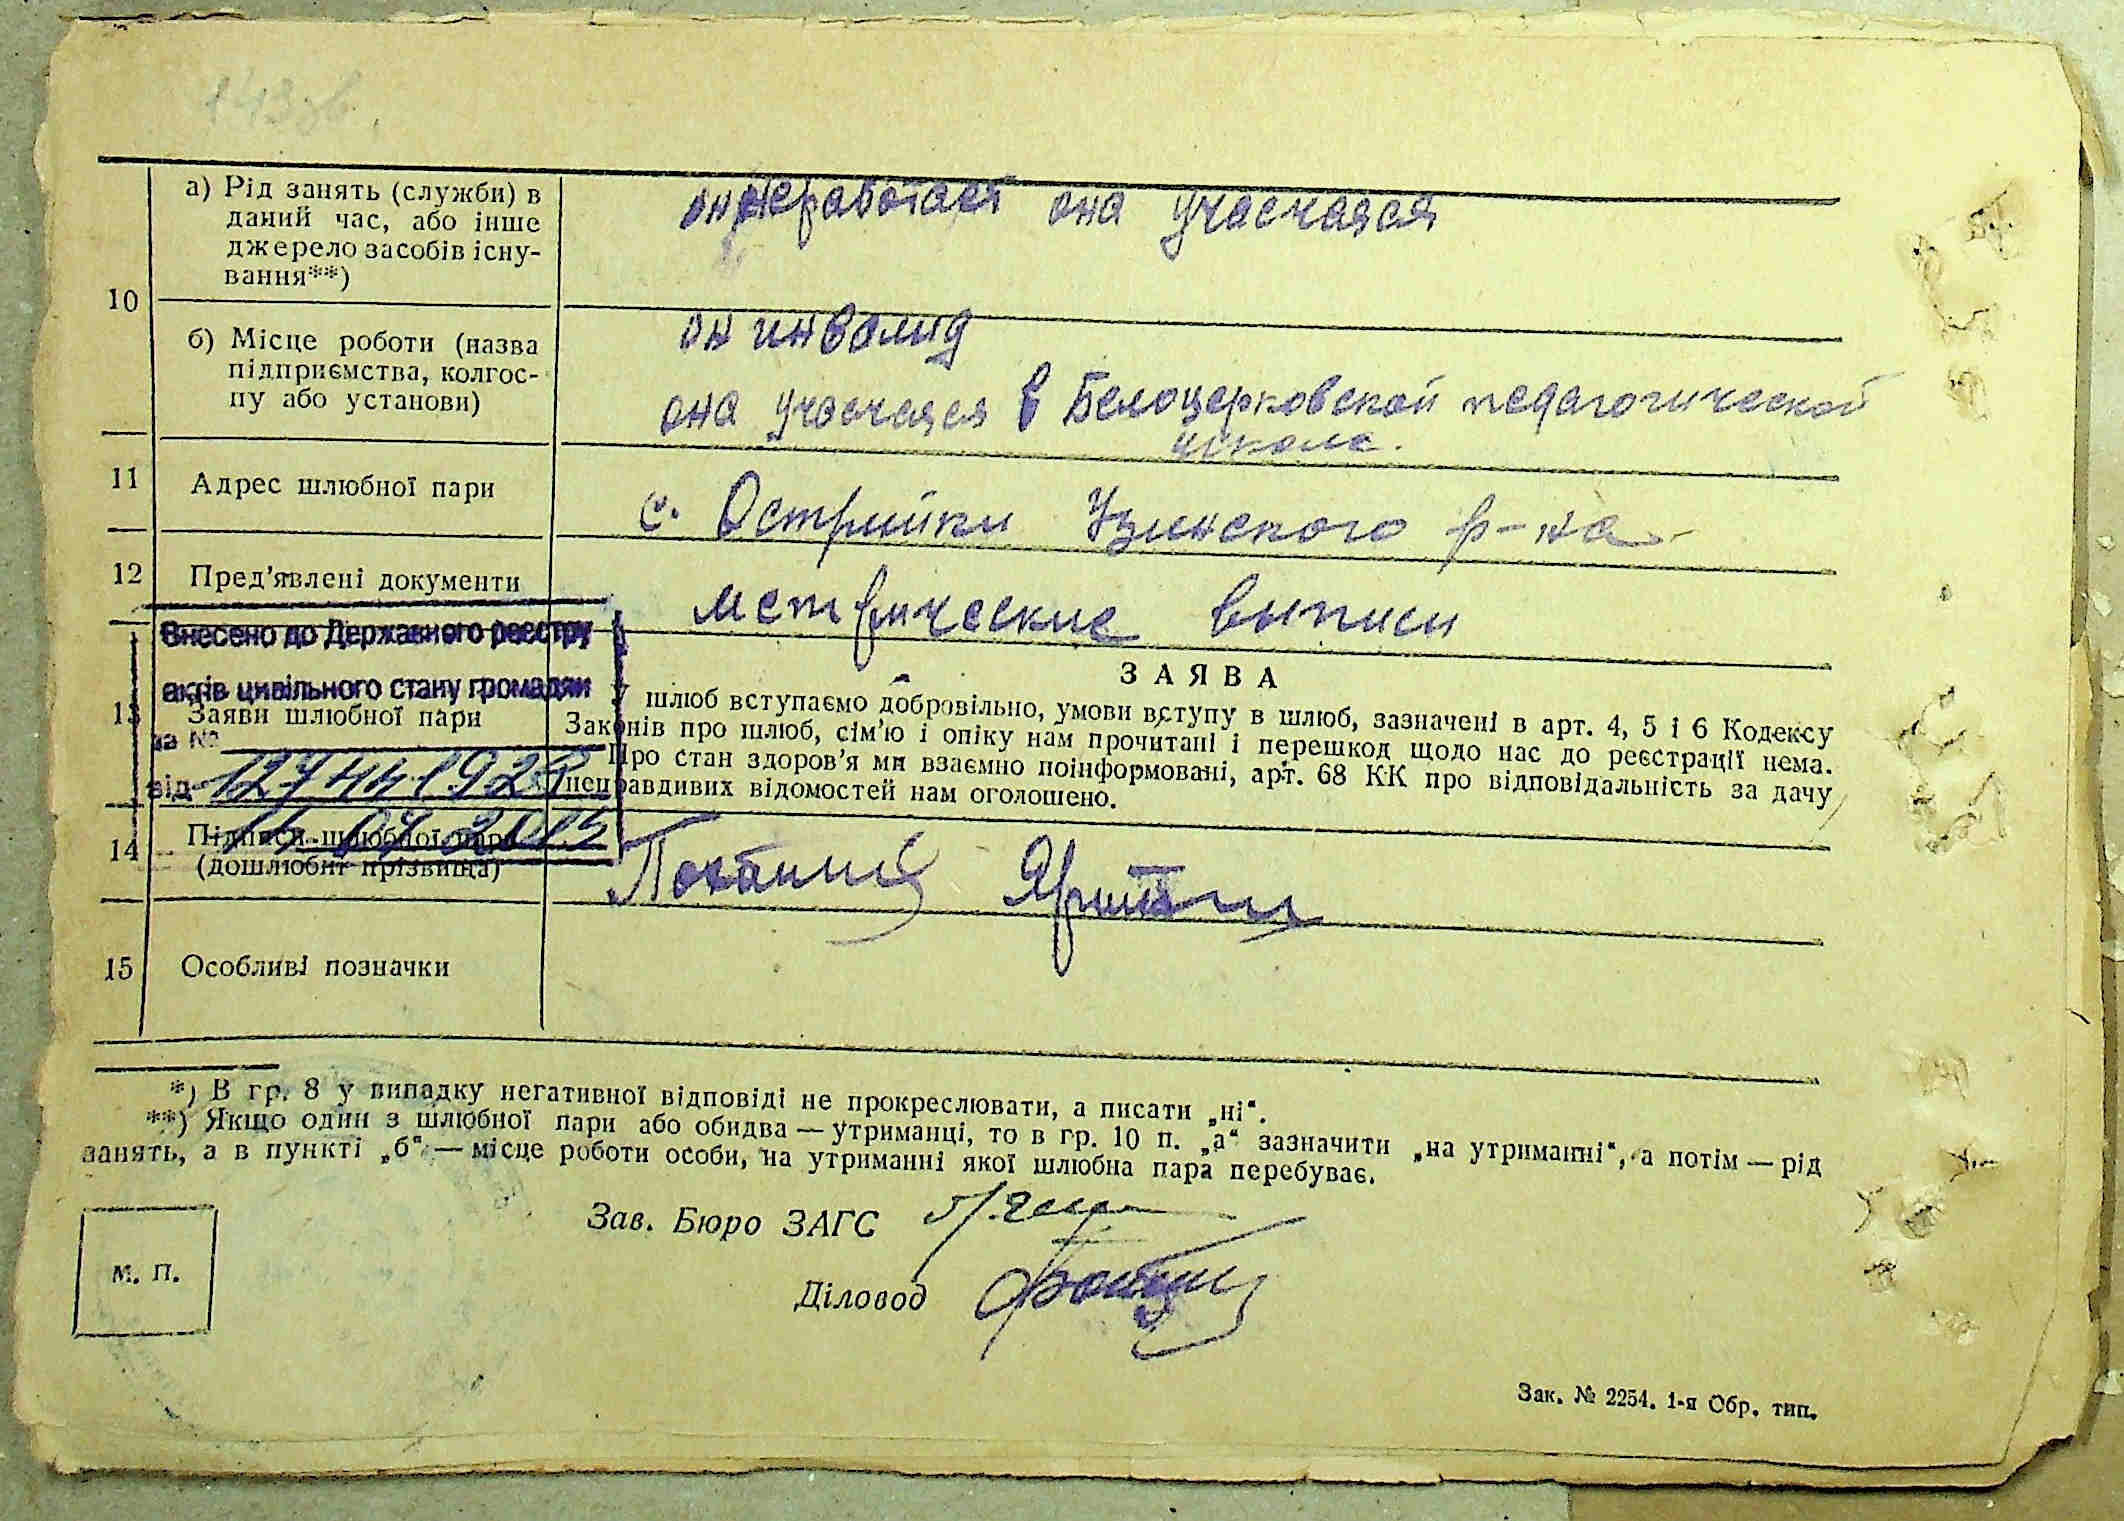 143 зв.
10
а) Рід занять (служби) в
даний час, або інше
джерело засобів існу-
вання**)
он неработает она учаснаяся
б) Місце роботи (назва
підприємства, колгос-
пу або установи)
он инвалид
она учасчаяся в Белоцерковской педагогической
школе.
11
Адрес шлюбної пари
с. Острийки Узинского р-на
12
Пред'явлені документи
метрические выписи
Внесено до Державного реєстру
актів цивільного стану громадян
за №
від 12744192
2015
13
Заяви шлюбної пари
ЗАЯВА
У шлюб вступаємо добровільно, умови вступу в шлюб, зазначені в арт. 4, 5 і 6 Кодексу
Законів про шлюб, сім'ю і опіку нам прочитані і перешкод щодо нас до реєстрації нема.
Про стан здоров'я ми взаємно поінформовані, арт. 68 КК про відповідальність за дачу
неправдивих відомостей нам оголошено.
14
Підписи шлюбної пари
(дошлюбні прізвища)
15
Особливі позначки
*) В гр. 8 у випадку негативної відповіді не прокреслювати, а писати „ні“.
**) Якщо один з шлюбної пари або обидва — утриманці, то в гр. 10 п. „а“ зазначити „на утриманні“, а потім — рід
занять, а в пункті „б“ — місце роботи особи, на утриманні якої шлюбна пара перебуває.
Зав. Бюро ЗАГС
М. П.
Діловод
Зак. № 2254. 1-я Обр. тип.